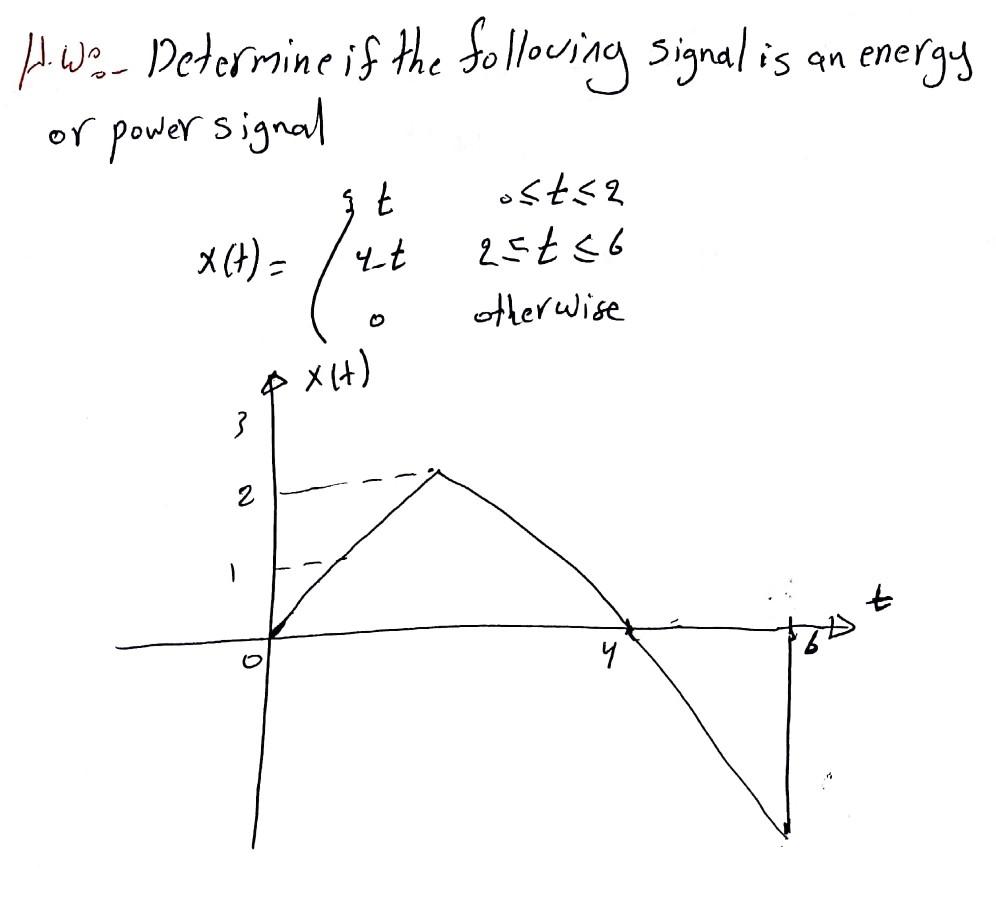 H.W:- Determine if the following signal is an energy
or power signal
t 0≤t≤2
x(t) = { 4-t 2≤t≤6
0 otherwise
x(t)
3
2
1
t
0 4 6